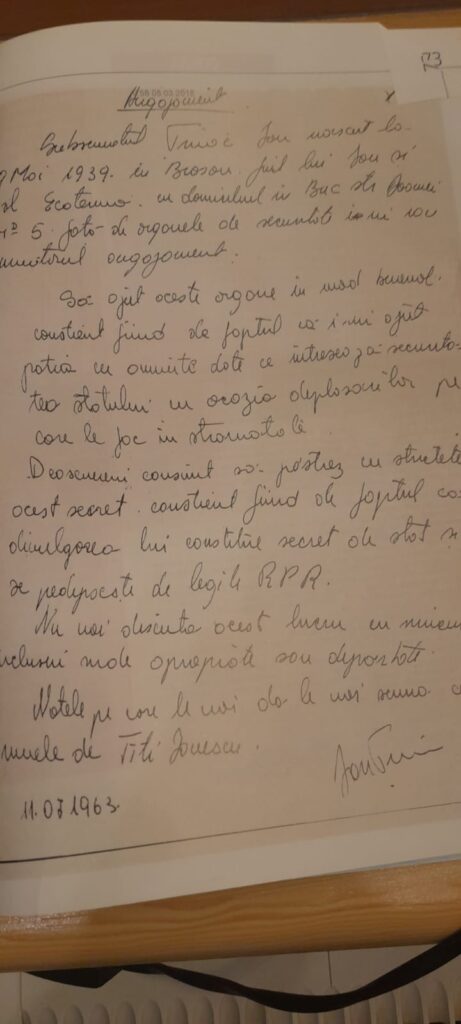 23
08.03.2018
Angajament
Subsemnatul Țiriac Ion născut la
9 Mai 1939 în Brașov. fiul lui Ion și
al Ecaterina cu domiciliul în Buc str
nº 5. față de organele de securitate îmi iau
următorul angajament:
Să ajut aceste organe în mod benevol.
conștient fiind de faptul că îmi ajut
patria cu anumite date ce intresează securita-
tea statului cu ocazia deplasărilor pe
care le fac în străinătate
Deasemeni consimt să păstrez cu strictețe
acest secret. conștient fiind de faptul că
divulgarea lui constitue secret de stat și
se pedepsește de legile RPR.
Nu voi discuta acest lucru cu nimeni
inclusiv rude apropiate sau depărtate.
Notele pe care le voi da le voi semna cu
numele de Titi Ionescu.
11.07.1963.